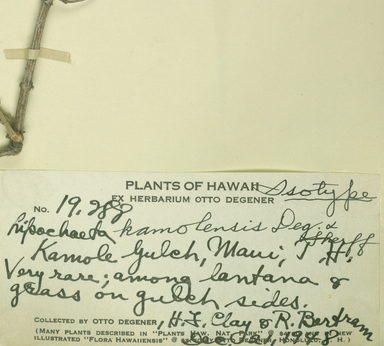 PLANTS OF HAWAII Isotype
EX HERBARIUM OTTO DEGENER
No. 19,288
Lipochaeta kamolensis Deg. &
Sherff
Kamole Gulch, Maui, T. H.
Very rare; among lantana &
grass on gulch sides.
COLLECTED BY OTTO DEGENER, H.F. Clay & R. Bertram
(MANY PLANTS DESCRIBED IN "PLANTS HAW. NAT. PARK" @ IN NEW
ILLUSTRATED "FLORA HAWAIIENSIS" @ OTTO DEGENER, HONOLULU, H.)